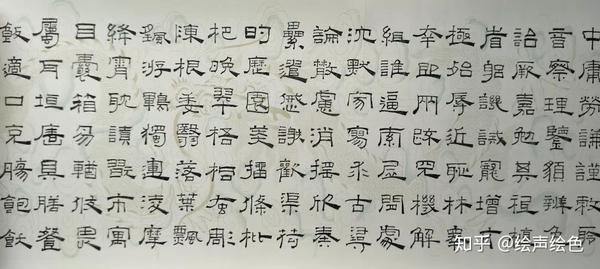 中庸勞謙謹敕聆
音察理鑒貌辨色
詒厥嘉勉其祗植
省躬譏誡寵增抗
極殆辱近恥林皋
幸即兩疏見機解
組誰逼索居閑處
沈默寂寥求古尋
論散慮逍遙欣奏
累遣慼謝歡渠荷
的歷園莽抽條枇
杷晚翠梧桐早彫
陳根委翳落葉飄
颻游鵾獨運凌摩
絳霄耽讀翫市寓
目囊箱易輶攸畏
屬耳垣牆具膳餐
飯適口充腸飽飫
知乎 @绘声绘色